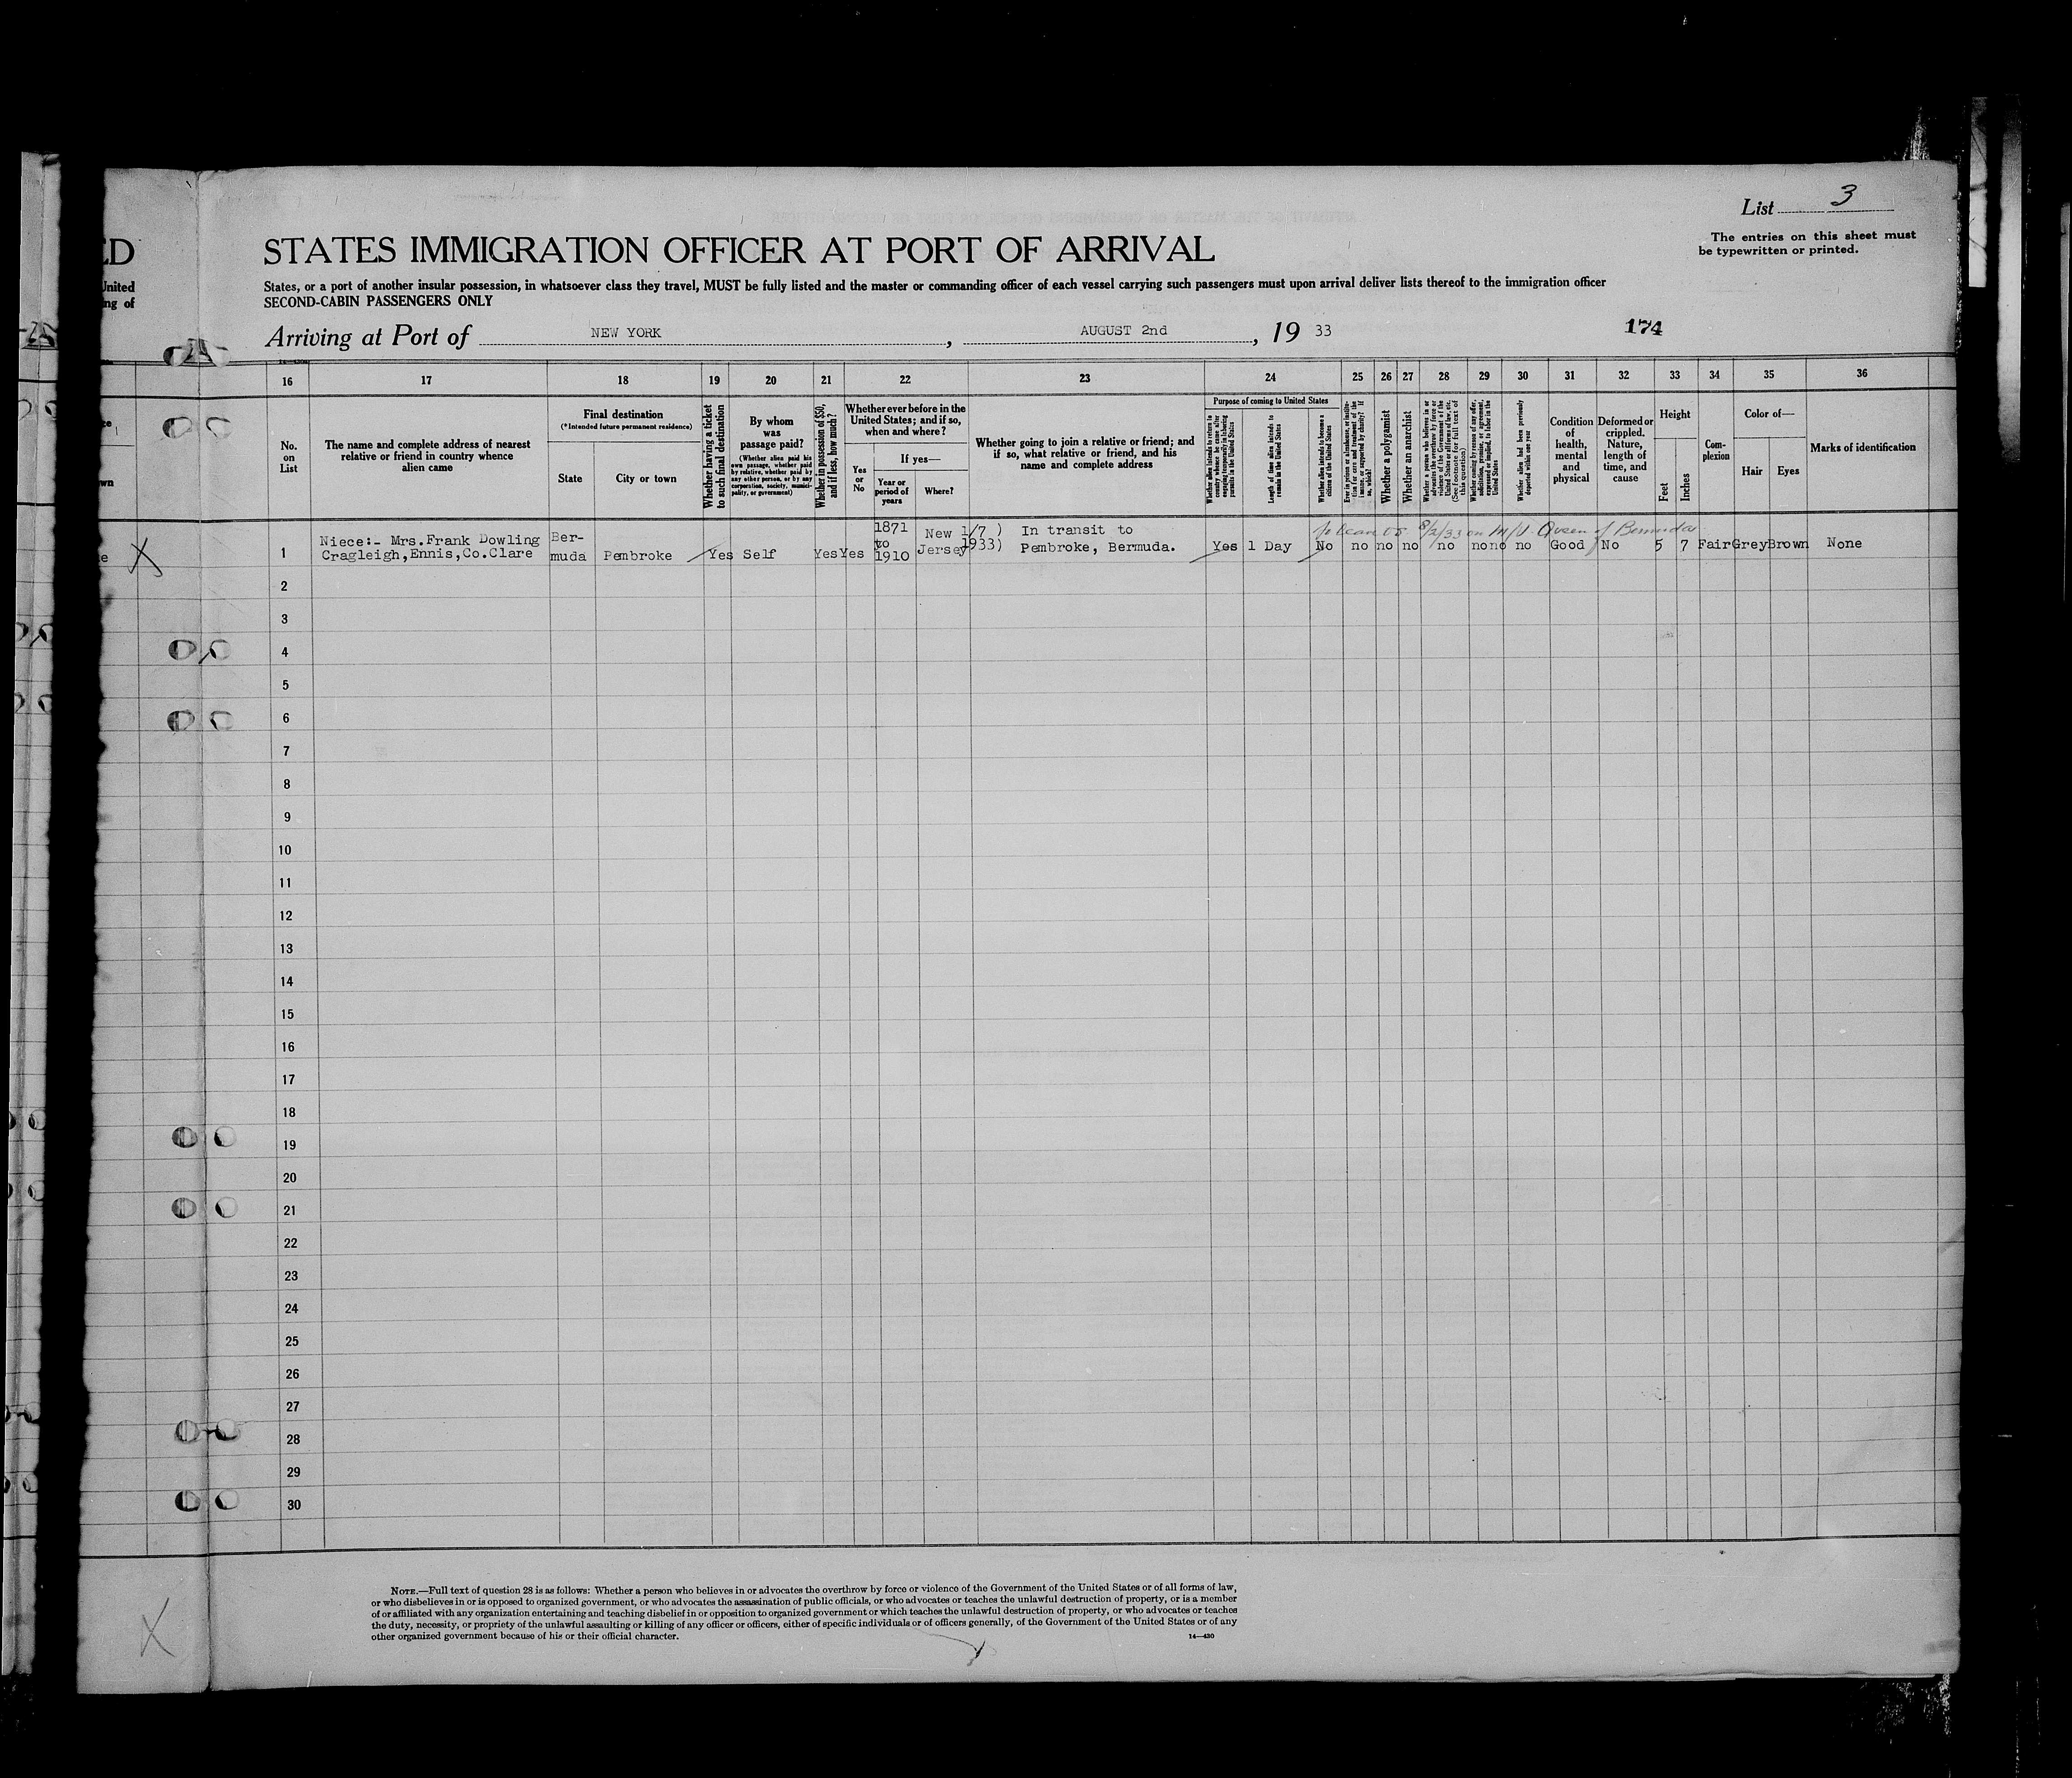 List 3
The entries on this sheet must
be typewritten or printed.
ED
STATES IMMIGRATION OFFICER AT PORT OF ARRIVAL
United
ng of
States, or a port of another insular possession, in whatsoever class they travel, MUST be fully listed and the master or commanding officer of each vessel carrying such passengers must upon arrival deliver lists thereof to the immigration officer
SECOND-CABIN PASSENGERS ONLY
Arriving at Port of NEW YORK, AUGUST 2nd, 19 33
174
16 17 18 19 20 21 22 23 24 25 26 27 28 29 30 31 32 33 34 35 36
No.
on
List
The name and complete address of nearest
relative or friend in country whence
alien came
Final destination
(*Intended future permanent residence)
State
City or town
Whether having a ticket
to such final destination
By whom
was
passage paid?
(Whether alien paid his
own passage, whether paid
by relative, whether paid by
any other person, or by any
corporation, society, munici-
pality, or government)
Whether in possession of $50,
and if less, how much?
Whether ever before in the
United States; and if so,
when and where?
Yes
or
No
If yes—
Year or
period of
years
Where?
Whether going to join a relative or friend; and
if so, what relative or friend, and his
name and complete address
Purpose of coming to United States
Whether alien intends to return to
country whence he came after
engaging temporarily in laboring
pursuits in the United States
Length of time alien intends to
remain in the United States
Whether alien intends to become a
citizen of the United States
Ever in prison or almshouse, or institu-
tion for care and treatment of the
insane, or supported by charity? If
so, which?
Whether a polygamist
Whether an anarchist
Whether a person who believes in or
advocates the overthrow by force or
violence of the Government of the
United States or all forms of law, etc.
(See footnote for full text of
this question)
Whether coming by reason of any offer,
solicitation, promise, or agreement,
expressed or implied, to labor in the
United States
Whether alien had been previously
deported within one year
Condition
of
health,
mental
and
physical
Deformed or
crippled.
Nature,
length of
time, and
cause
Height
Feet
Inches
Com-
plexion
Color of—
Hair
Eyes
Marks of identification
8/2/33 on M/V Queen of Bermuda
1 Niece:- Mrs.Frank Dowling
Cragleigh,Ennis,Co.Clare
Ber-
muda
Pembroke
Yes
Self
Yes
Yes
1871
to
1910
New 1/7 )
Jersey 1933)
In transit to
Pembroke, Bermuda.
Yes
1 Day
No no no no no no no no Good No 5 7 Fair Grey Brown None
2
3
4
5
6
7
8
9
10
11
12
13
14
15
16
17
18
19
20
21
22
23
24
25
26
27
28
29
30
NOTE.—Full text of question 28 is as follows: Whether a person who believes in or advocates the overthrow by force or violence of the Government of the United States or of all forms of law,
or who disbelieves in or is opposed to organized government, or who advocates the assassination of public officials, or who advocates or teaches the unlawful destruction of property, or is a member
of or affiliated with any organization entertaining and teaching disbelief in or opposition to organized government or which teaches the unlawful destruction of property, or who advocates or teaches
the duty, necessity, or propriety of the unlawful assaulting or killing of any officer or officers, either of specific individuals or of officers generally, of the Government of the United States or of any
other organized government because of his or their official character.
14—430